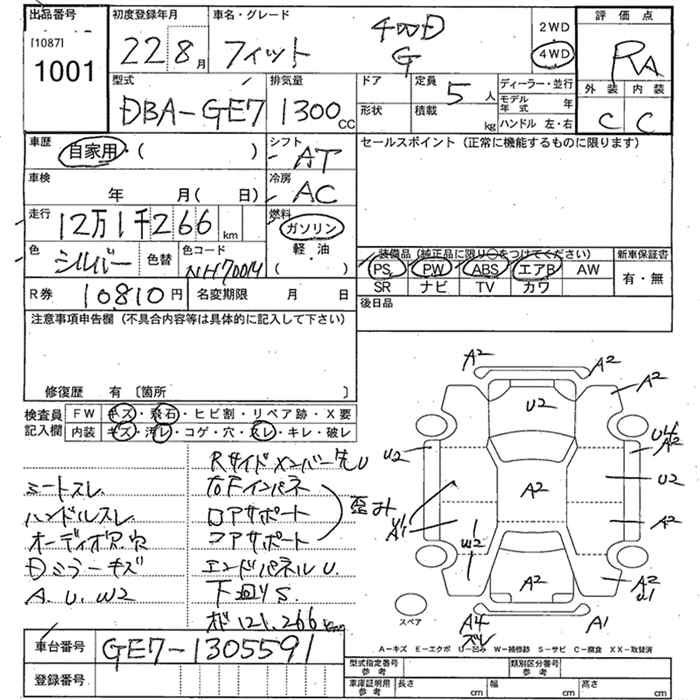 出品番号 初度登録年月 車名・グレード 評価点
[1087] 1001 22 8月 フィット 4WD G 2WD 4WD RA
外装 内装
C C
型式 排気量 ドア 定員 ディーラー・並行
DBA-GE7 1300CC 5人 モデル年式 年
形状 積載 kg ハンドル 左・右
車歴 自家用・( ) シフト AT セールスポイント(正常に機能するものに限ります)
車検 年 月( 日) 冷房 AC
走行 12万1千266km 燃料 ガソリン
軽・油
( )
色 シルバー 色替 色コード NH700M
装備品(純正品に限り○をつけてください) 新車保証書
PS PW ABS エアB AW 有・無
SR ナビ TV カワ
R券 10810円 名変期限 月 日 後日品
注意事項申告欄(不具合内容等は具体的に記入して下さい)
修復歴 有〔箇所 〕
検査員記入欄 FW キズ・飛石・ヒビ割・リペア跡・X要
内装 キズ・汚レ・コゲ・穴・スレ・キレ・破レ
Rサイドメンバー先U
シートスレ 右Fインパネ
ハンドルスレ ロアサポート 歪み
オーディオ穴 コアサポート
Dミラーキズ エンドパネルU.
A.U.W2 下廻りS.
121,266km
A2 A2 A2
U2
U2 A2
A2 U2
A1 A2
W2
A2 A2 U1
スペア A4 スレ A1
A-キズ E-エクボ U-凹み W-補修跡 S-サビ C-腐食 XX-取替済
車台番号 GE7-1305591 型式指定番号 参考 類別区分番号 参考
登録番号 車庫証明用 参考 長さ cm 幅 cm 高さ cm